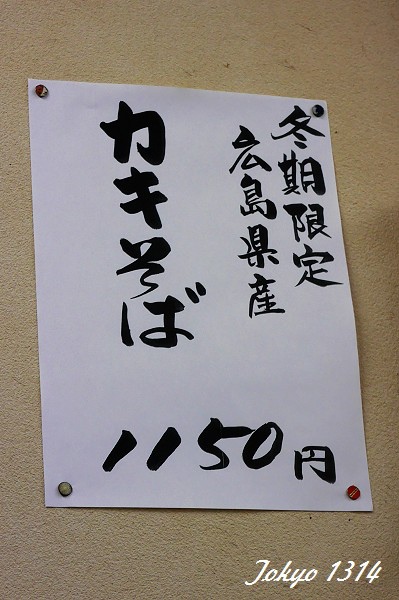 冬期限定
広島県産
カキそば
1150円
Tokyo 1314